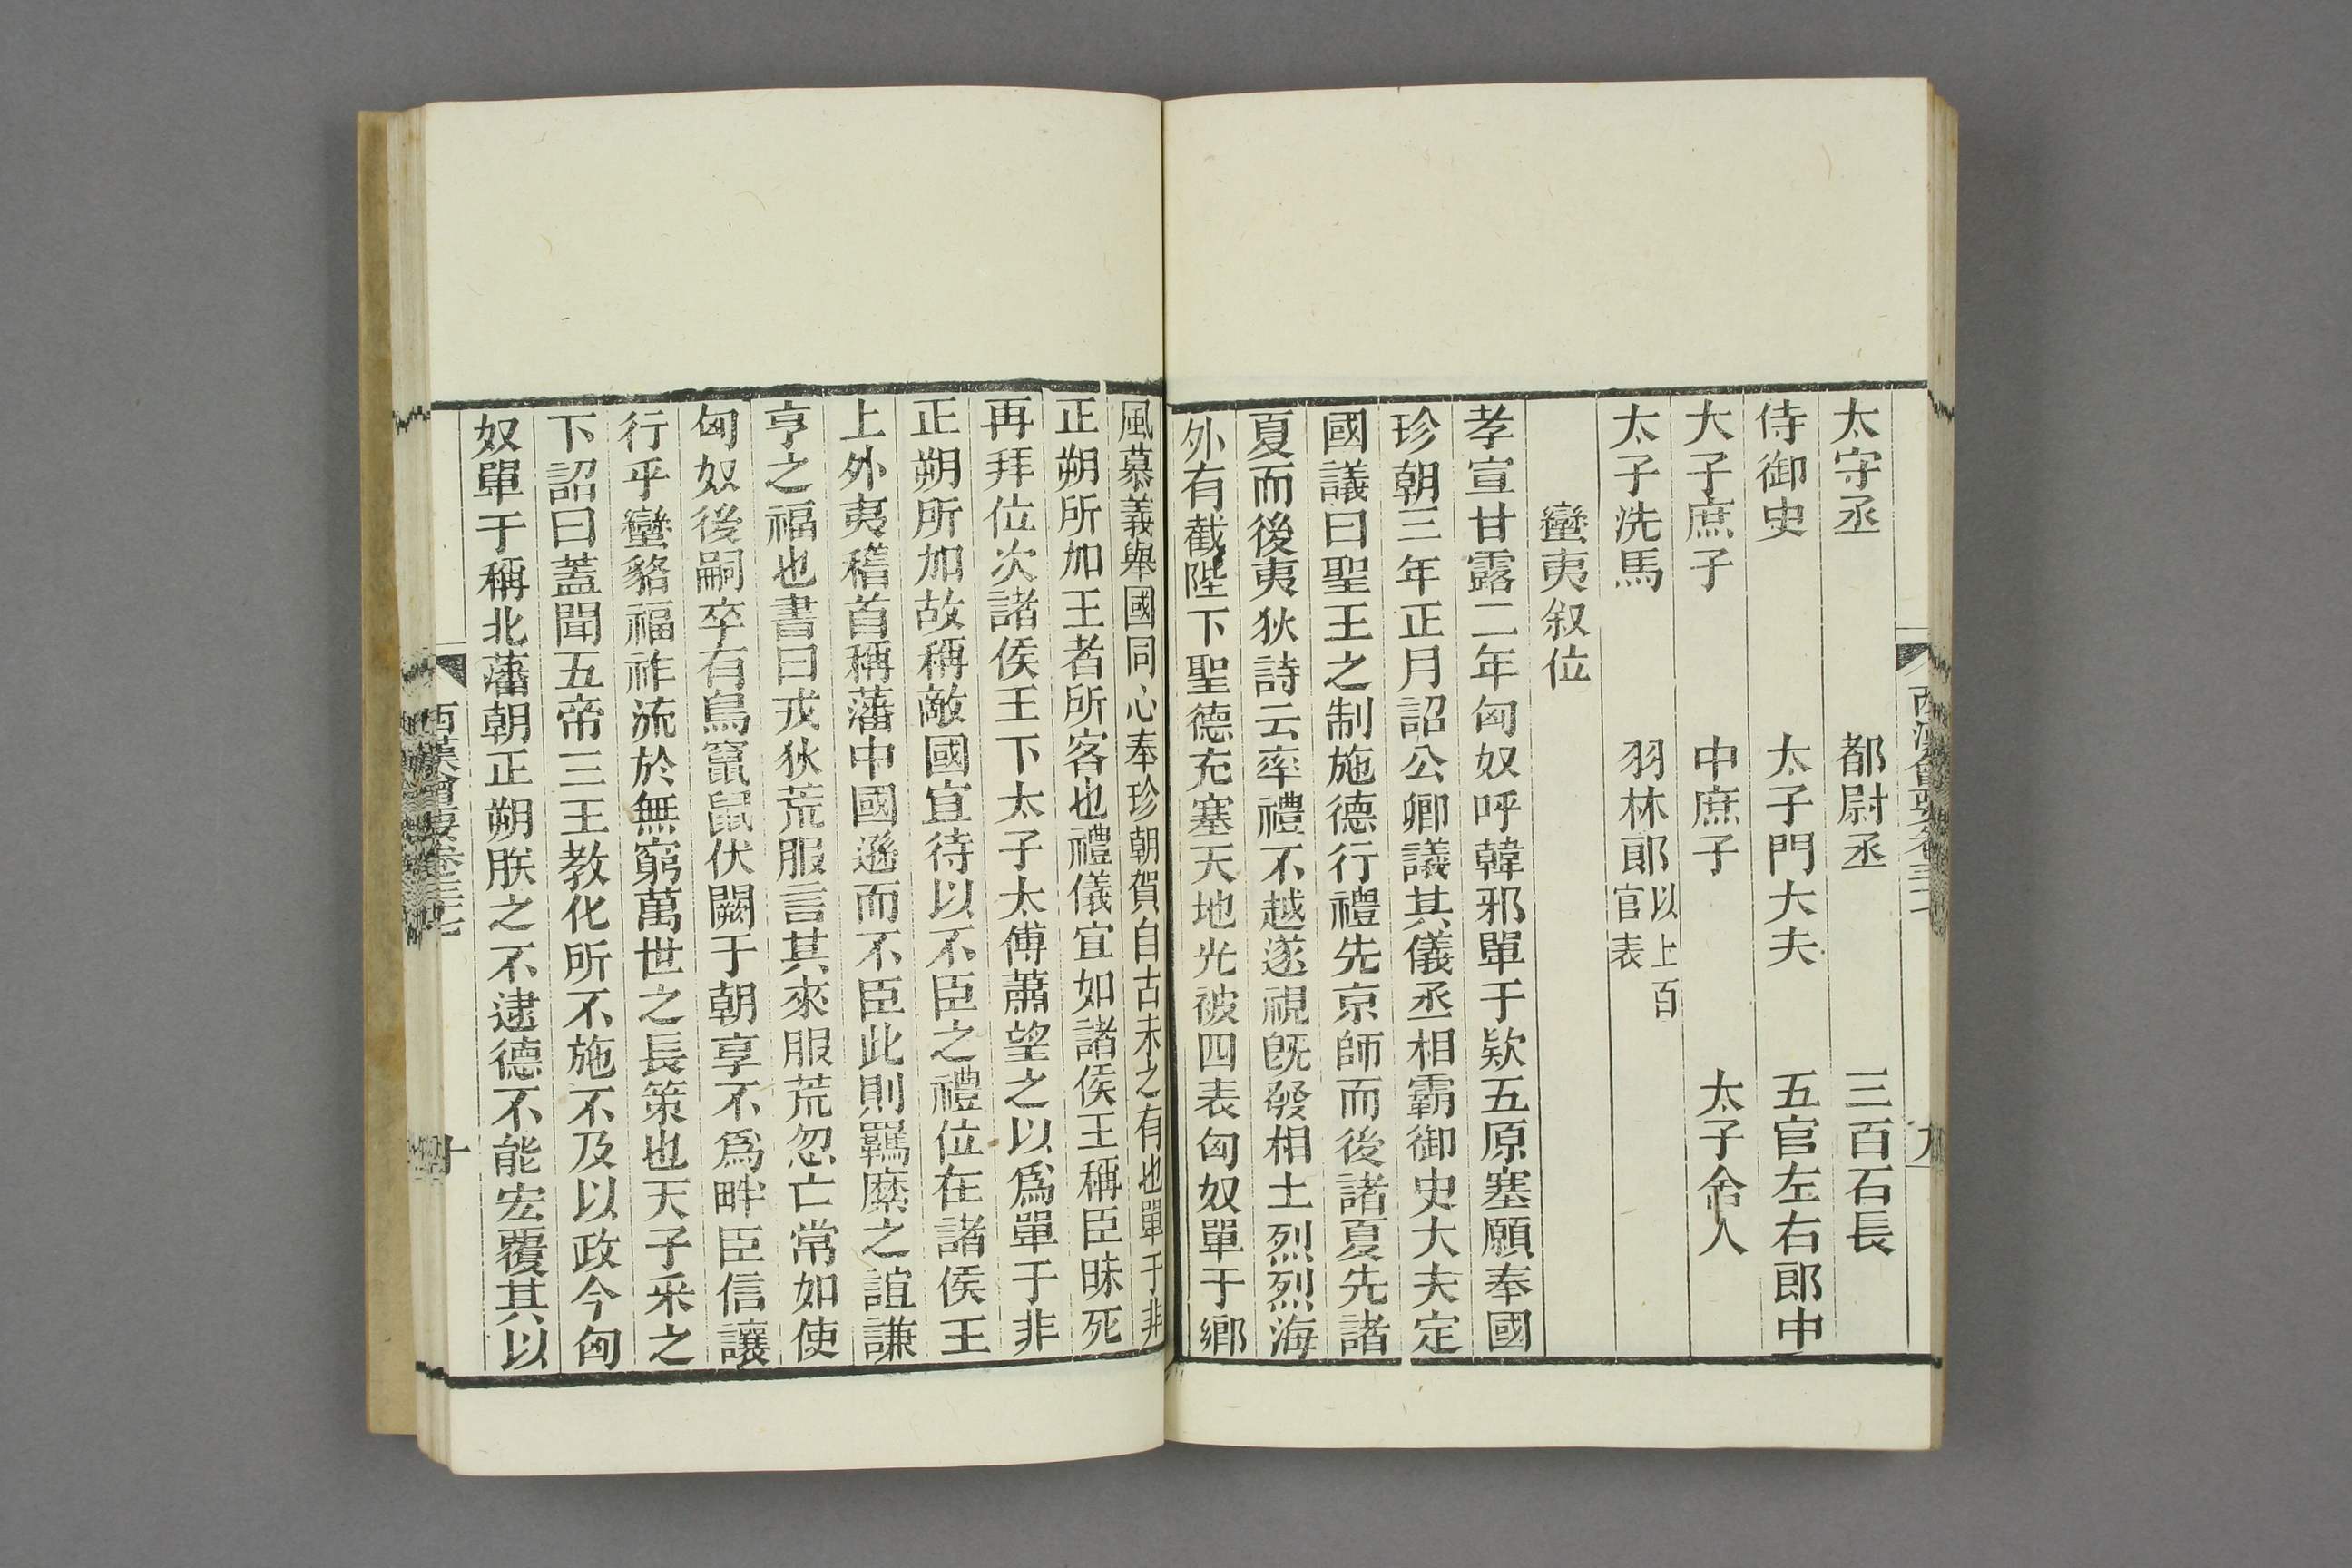 太守丞 都尉丞 三百石長
侍御史 太子門大夫 五官左右郎中
大子庶子 中庶子 太子舍人
太子洗馬 羽林郎以上百官表
蠻夷叙位
孝宣甘露二年匈奴呼韓邪單于欵五原塞願奉國
珍朝三年正月詔公卿議其儀丞相霸御史大夫定
國議曰聖王之制施德行禮先京師而後諸夏先諸
夏而後夷狄詩云率禮不越遂視旣發相土烈烈海
外有截陛下聖德充塞天地光被四表匈奴單于鄉
風慕義舉國同心奉珍朝賀自古未之有也單于非
正朔所加王者所客也禮儀宜如諸侯王稱臣昧死
再拜位次諸侯王下太子太傅蕭望之以爲單于非
正朔所加故稱敵國宜待以不臣之禮位在諸侯王
上外夷稽首稱藩中國遜而不臣此則羈縻之誼謙
亨之福也書曰戎狄荒服言其來服荒忽亡常如使
匈奴後嗣卒有鳥竄鼠伏闕于朝享不爲畔臣信讓
行乎蠻貉福祚流於無窮萬世之長策也天子采之
下詔曰蓋聞五帝三王教化所不施不及以政今匈
奴單于稱北藩朝正朔朕之不逮德不能宏覆其以
西漢會要卷三十七
十